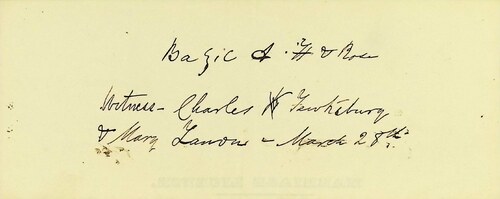 Bazic A. H & Rose
Witness - Charles W Tewksbury
& Mary - March 28th